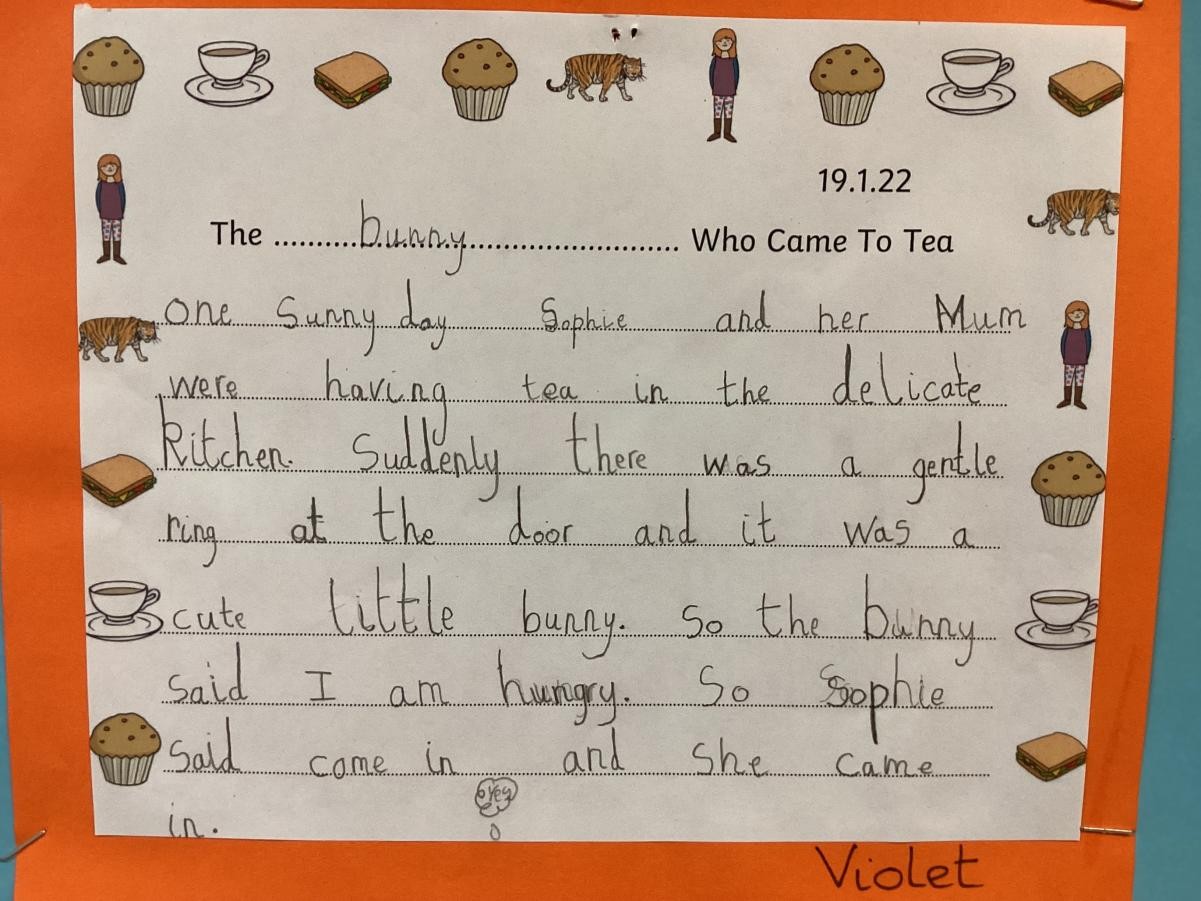 19.1.22
The ..........bunny.............................. Who Came To Tea
one Sunny day Sophie and her Mum
were having tea in the delicate
Kitchen. Suddenly there was a gentle
ring at the door and it was a
cute little bunny. So the bunny
said I am hungry. So Sophie
said come in and she came
in.
Violet